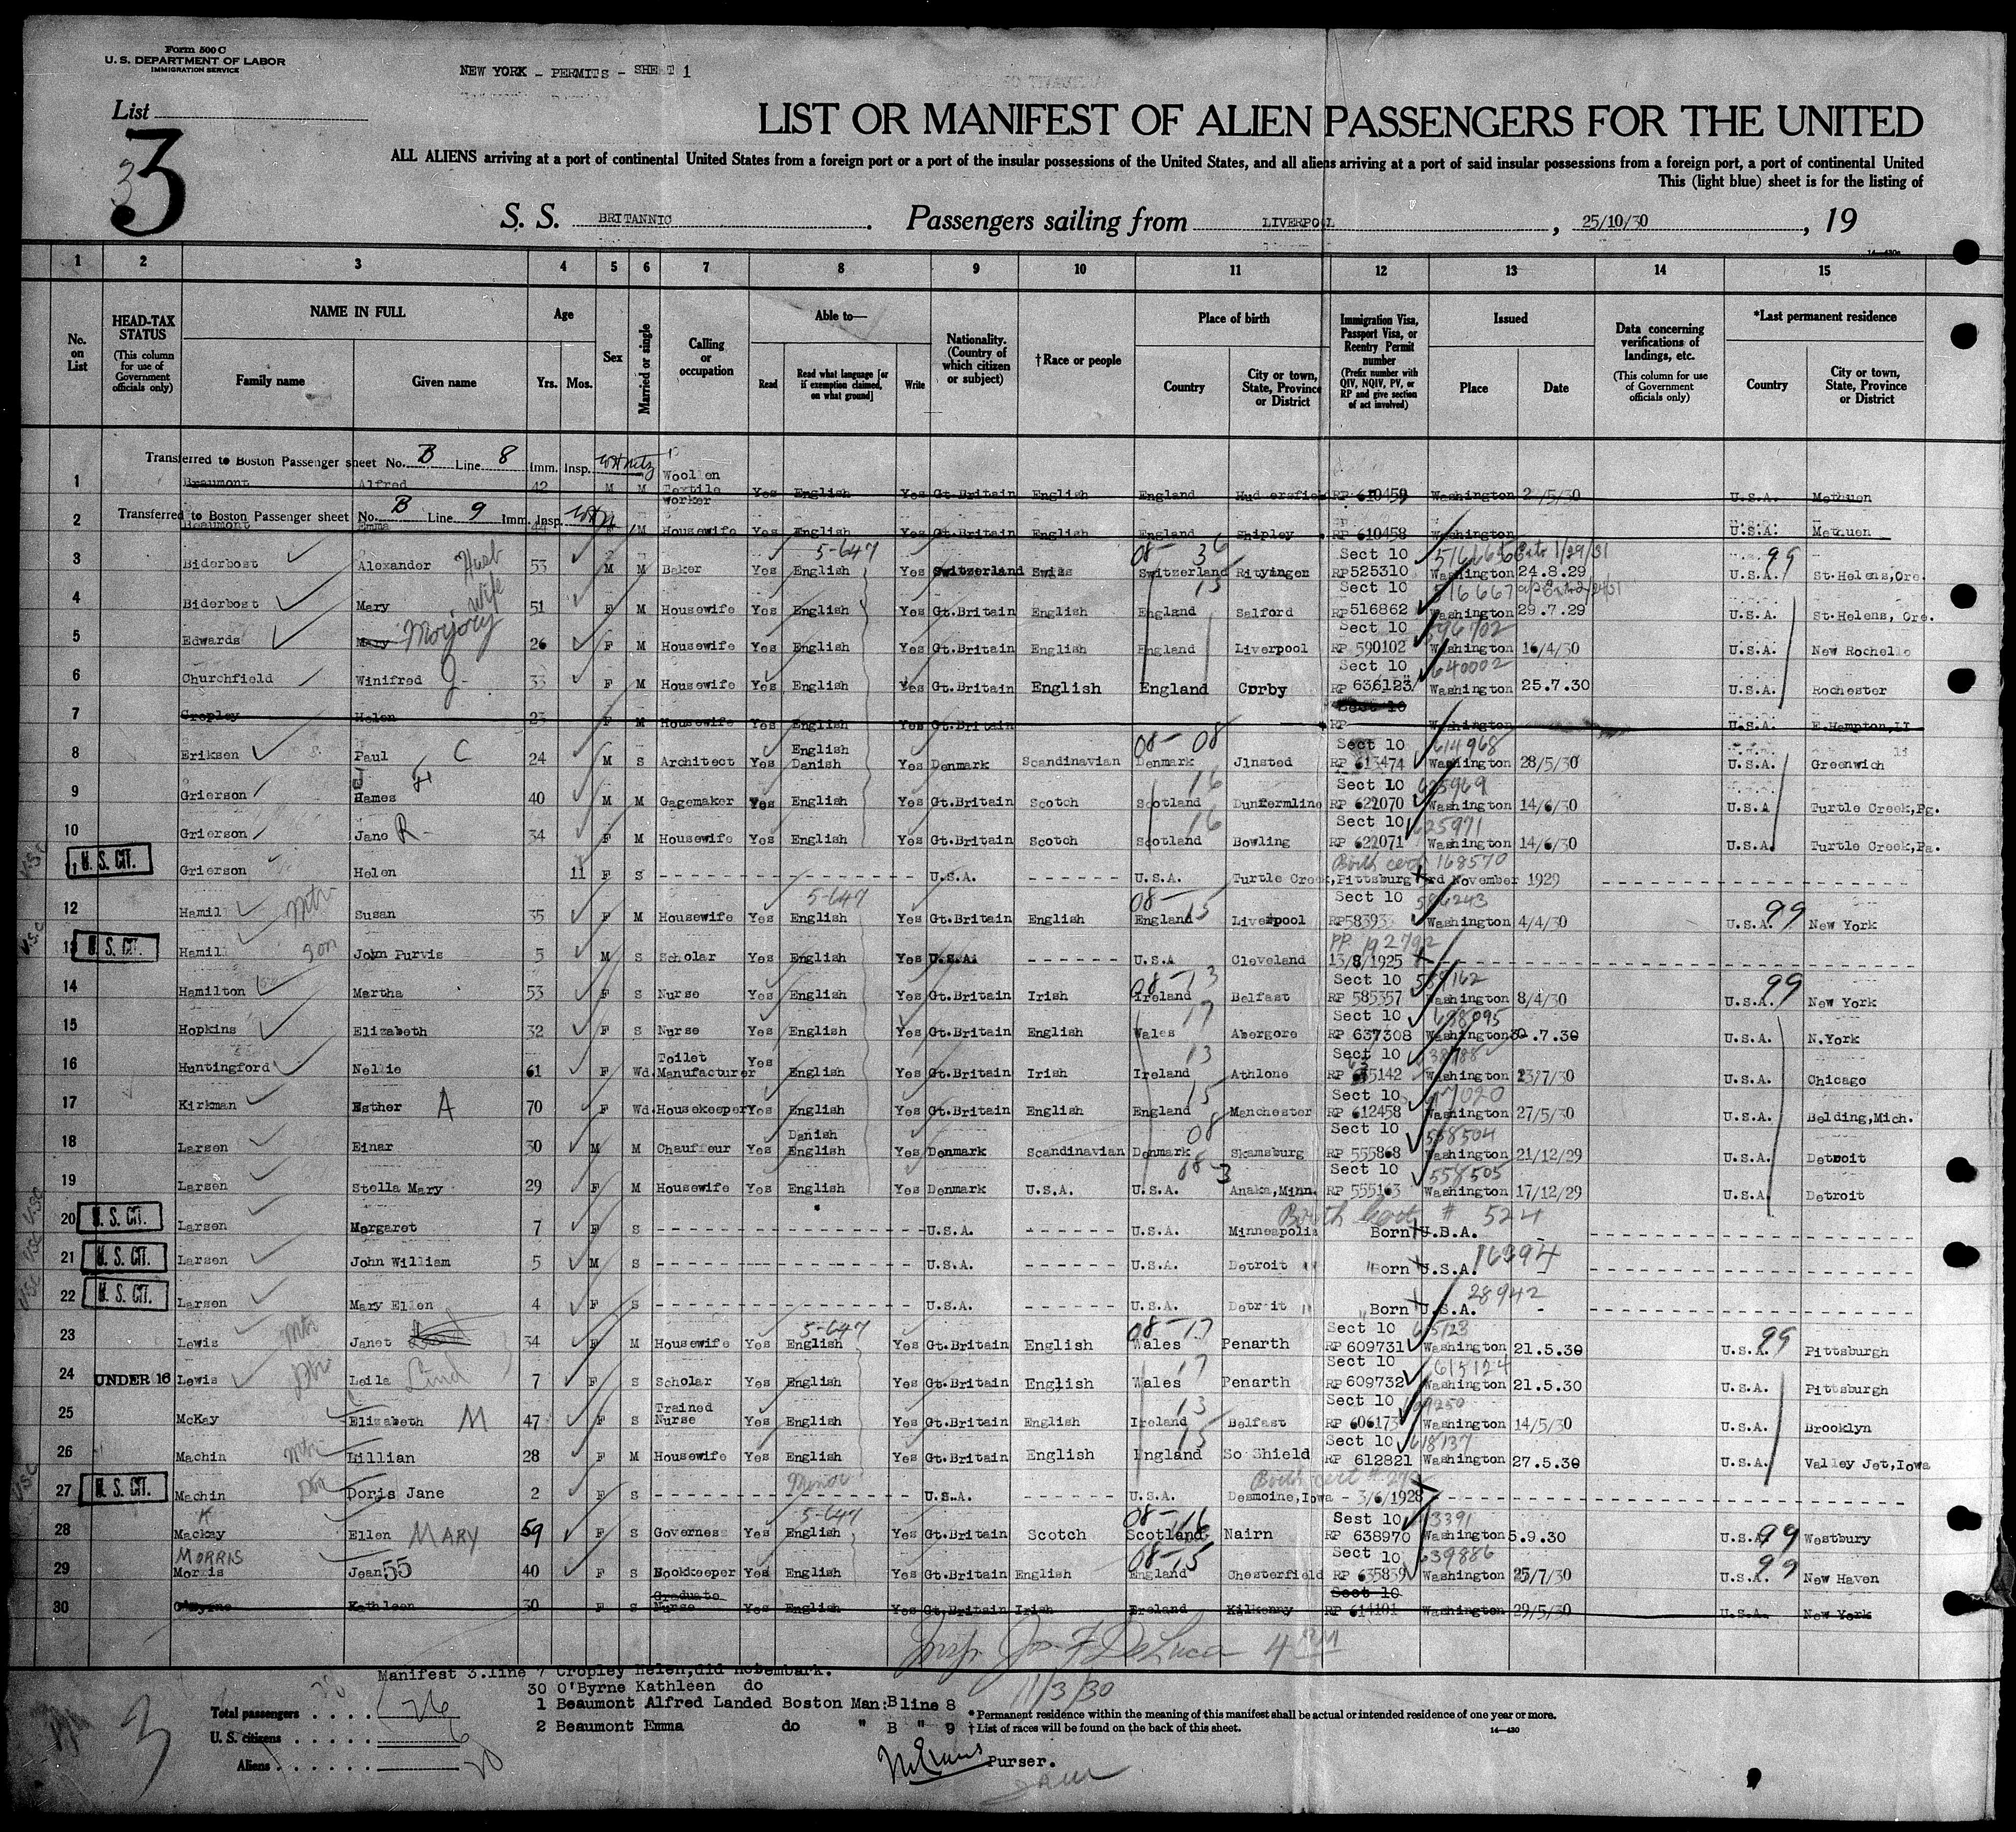 Form 500 C
U. S. DEPARTMENT OF LABOR
IMMIGRATION SERVICE
NEW YORK - PERMITS - SHEET 1
List
3
3
LIST OR MANIFEST OF ALIEN PASSENGERS FOR THE UNITED
ALL ALIENS arriving at a port of continental United States from a foreign port or a port of the insular possessions of the United States, and all aliens arriving at a port of said insular possessions from a foreign port, a port of continental United
This (light blue) sheet is for the listing of
S. S. BRITANNIC . Passengers sailing from LIVERPOOL , 25/10/30 , 19
1 2 3 4 5 6 7 8 9 10 11 12 13 14 15
No. on List
HEAD-TAX STATUS (This column for use of Government officials only)
NAME IN FULL
Family name Given name
Age
Yrs. Mos.
Sex
Married or single
Calling or occupation
Able to—
Read Read what language [or if exemption claimed, on what ground] Write
Nationality. (Country of which citizen or subject)
†Race or people
Place of birth
Country City or town, State, Province or District
Immigration Visa, Passport Visa, or Reentry Permit number (Prefix number with QIV, NQIV, PV, or RP and give section of act involved)
Issued
Place Date
Data concerning verifications of landings, etc. (This column for use of Government officials only)
*Last permanent residence
Country City or town, State, Province or District
Transferred to Boston Passenger sheet No. B Line 8 Imm. Insp.
1 Beaumont Alfred 42 M M Woollen Textile worker Yes English Yes Gt.Britain English England Huddersfield RP 610459 Washington 2 /5/30 U.S.A. Methuen
Transferred to Boston Passenger sheet No. B Line 9 Imm. Insp.
2 Beaumont Emma 44 F M Housewife Yes English Yes Gt.Britain English England Shipley RP 610458 Washington U.S.A. Methuen
3 Biderbost Alexander Husb 53 M M Baker Yes 5-647 English Yes Switzerland Swiss 08- 36 Switzerland Sect 10 RP525310 Washington 24.8.29 99 U.S.A. St.Helens,Ore.
4 Biderbost Mary wife 51 F M Housewife Yes English Yes Gt.Britain English England 15 Salford Sect 10 RP516862 516667 Washington 29.7.29 U.S.A. St.Helens, Ore.
5 Edwards Mary Morjory 26 F M Housewife Yes English Yes Gt.Britain English England Liverpool Sect 10 RP 590102 596702 Washington 16/4/30 U.S.A. New Rochelle
6 Churchfield Winifred J- 33 F M Housewife Yes English Yes Gt.Britain English England Corby Sect 10 RP 636123 640002 Washington 25.7.30 U.S.A. Rochester
7 Cropley Helen 23 F M Housewife Yes English Yes Gt.Britain Sect 10 RP Washington U.S.A. E.Hampton,LI
8 Eriksen Paul C 24 M S Architect Yes English Danish Yes Denmark Scandinavian 08- 08 Denmark Jlnsted Sect 10 RP 613474 614968 Washington 28/5/30 U.S.A. Greenwich
9 Grierson J Hames H 40 M M Gagemaker Yes English Yes Gt.Britain Scotch Scotland 16 Dunfermline Sect 10 RP 622070 625969 Washington 14/6/30 U.S.A Turtle Creek,Pa.
10 Grierson Jane R- 34 F M Housewife Yes English Yes Gt.Britain Scotch Scotland 16 Bowling Sect 10 RP 622071 625971 Washington 14/6/30 U.S.A. Turtle Creek,Pa.
USC U. S. CIT. Grierson Helen 11 F S U.S.A. U.S.A. Birth cert 168570 Turtle Creek,Pittsburg 3rd November 1929
12 Hamill Mtr Susan 35 F M Housewife Yes 5-647 English Yes Gt.Britain English 08- 15 England Liverpool Sect 10 RP58393 586243 Washington 4/4/30 99 U.S.A. New York
USC 13 U. S. CIT. Hamill Son John Purvis 5 M S Scholar Yes English Yes U.S.A. U.S.A Cleveland PP 192792 13/8/1925
14 Hamilton Martha 53 F S Nurse Yes English Yes Gt.Britain Irish 08-13 Ireland Belfast Sect 10 RP 585357 Washington 8/4/30 99 U.S.A. New York
15 Hopkins Elizabeth 32 F S Nurse Yes English Yes Gt.Britain English Wales 17 Abergore Sect 10 RP 637308 Washington 30.7.30 U.S.A. N.York
16 Huntingford Nellie 61 F Wd. Toilet Manufacturer Yes English Yes Gt.Britain Irish Ireland 13 Athlone Sect 10 RP 635142 Washington 23/7/30 U.S.A. Chicago
17 Kirkman Esther A 70 F Wd. Housekeeper Yes English Yes Gt.Britain English England 15 Manchester Sect 10 RP 612458 Washington 27/5/30 U.S.A. Belding,Mich.
18 Larsen Einar 30 M M Chauffeur Yes Danish English Yes Denmark Scandinavian Denmark 08 Skamsburg Sect 10 RP 555868 558504 Washington 21/12/29 U.S.A. Detroit
19 Larsen Stella Mary 29 F M Housewife Yes English Yes Denmark U.S.A. U.S.A. 08-3 Anaka,Minn. Sect 10 RP 555163 558505 Washington 17/12/29 U.S.A. Detroit
USC 20 U. S. CIT. Larsen Margaret 7 F S U.S.A. U.S.A. Minneapolis Birth Cert # 524 Born U.S.A.
USC 21 U. S. CIT. Larsen John William 5 M S U.S.A. U.S.A. Detroit " "Born U.S.A. 16394
USC 22 U. S. CIT. Larsen Mary Ellen 4 F S U.S.A. U.S.A. Detroit " "Born U.S.A. 28942
23 Lewis Mtr Janet 34 F M Housewife Yes 5-647 English Yes Gt.Britain English 08-17 Wales Penarth Sect 10 RP 609731 615123 Washington 21.5.30 99 U.S.A. Pittsburgh
24 UNDER 16 Lewis Dtr Leila Lind 7 F S Scholar Yes English Yes Gt.Britain English Wales 17 Penarth Sect 10 RP 609732 615124 Washington 21.5.30 U.S.A. Pittsburgh
25 McKay Elizabeth M 47 F S Trained Nurse Yes English Yes Gt.Britain English Ireland 13 Belfast Sect 10 RP 606173 Washington 14/5/30 U.S.A. Brooklyn
26 Machin Mtr Lillian 28 F M Housewife Yes English Yes Gt.Britain English England 15 So Shield Sect 10 RP 612821 618137 Washington 27.5.30 U.S.A. Valley Jet,Iowa
USC 27 U. S. CIT. Machin Dtr Doris Jane 2 F S Minor U.S.A. U.S.A. Birth cert # Desmoine,Iowa - 3/6/1928
28 K Mackay Ellen MARY 59 F S Governess Yes 5-647 English Yes Gt.Britain Scotch 08-16 Scotland Nairn Sest 10 RP 638970 Washington 5.9.30 U.S.A. 99 Westbury
29 MORRIS Morris Jean 55 40 F S Bookkeeper Yes English Yes Gt.Britain English 08-15 England Chesterfield Sect 10 RP 635839 639886 Washington 25/7/30 U.S.A. 99 New Haven
30 O'Byrne Kathleen 30 F S Graduate Nurse Yes English Yes Gt.Britain Irish Ireland Kilkenny Sect 10 RP 614101 Washington 29/5/30 U.S.A. New York
Insp. Jos F DeLuca 4 PM
11/3/30
Manifest 3.line 7 Cropley Helen,did notembark.
30 O'Byrne Kathleen do
1 Beaumont Alfred Landed Boston Man: B line 8
2 Beaumont Emma do " B " 9
Total passengers 26
U. S. citizens 6
Aliens 20
3
* Permanent residence within the meaning of this manifest shall be actual or intended residence of one year or more.
† List of races will be found on the back of this sheet.
14—430
Purser.